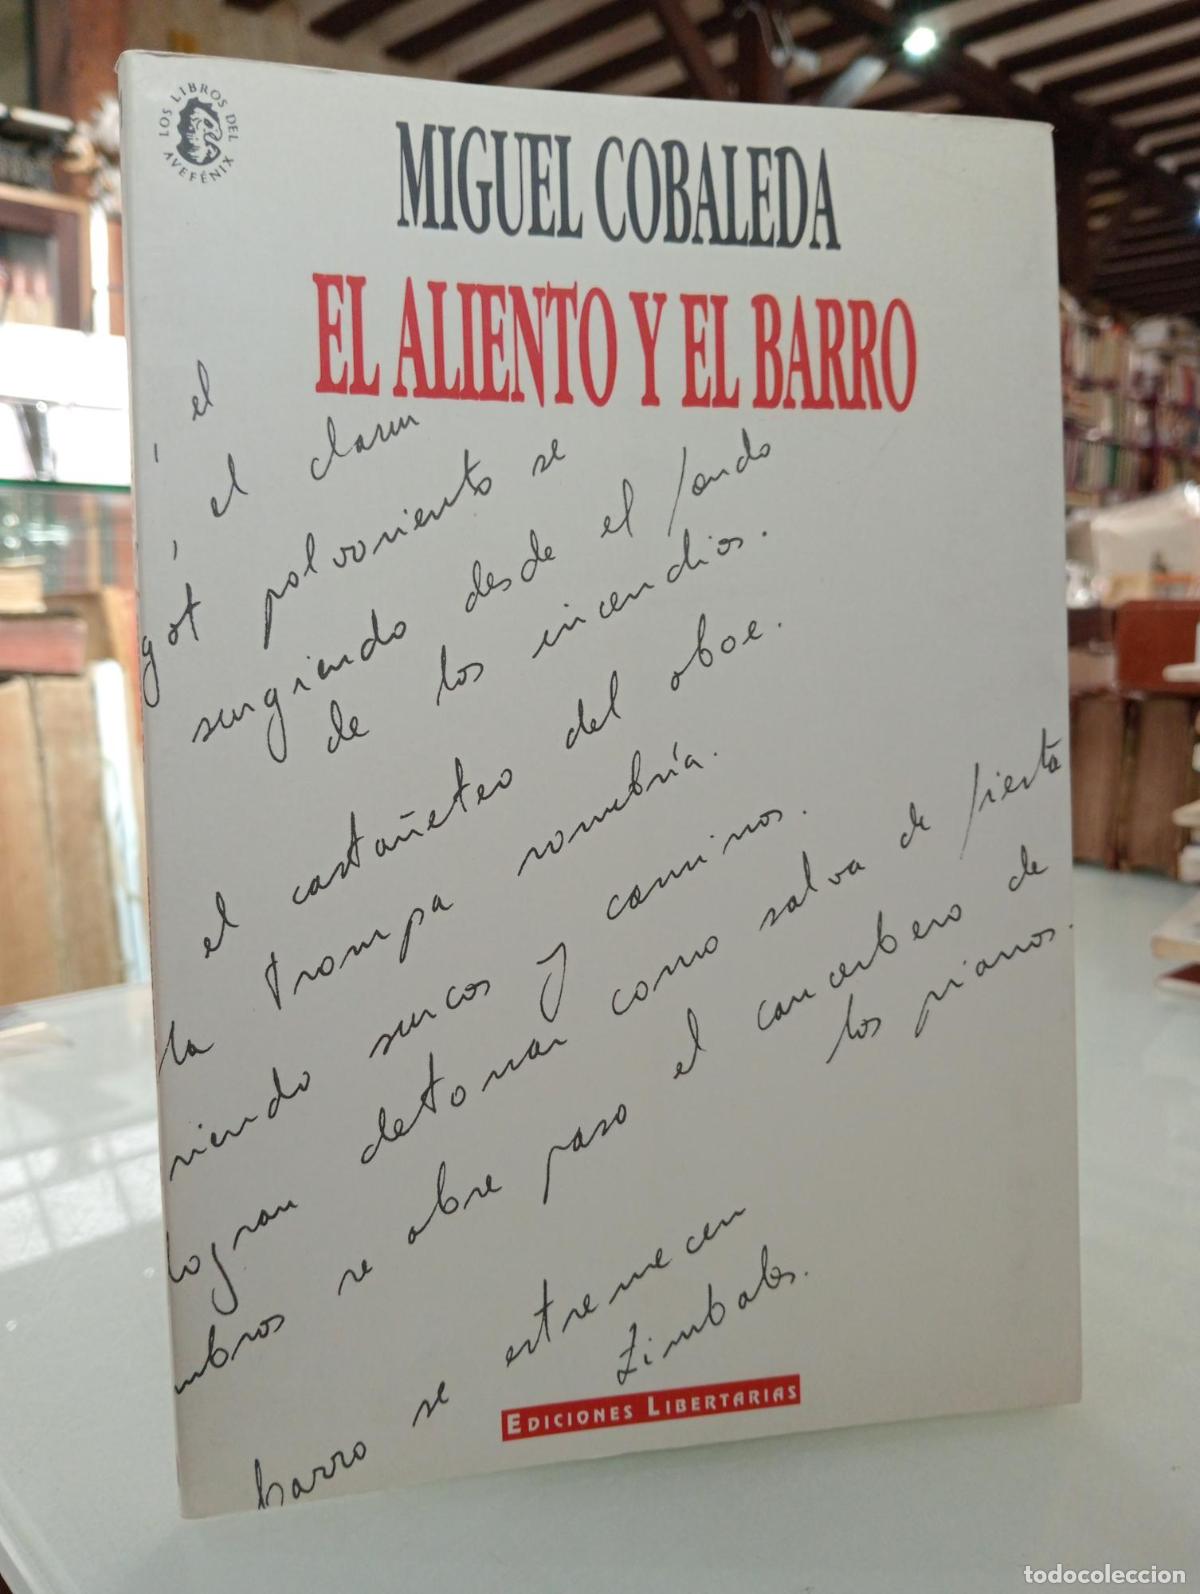 LOS LIBROS DEL AVEFÉNIX
MIGUEL COBALEDA
EL ALIENTO Y EL BARRO
, el
, el clarin
got polvoriento se
surgiendo desde el fondo
de los incendios.
el castañeteo del oboe.
la trompa sombría.
riendo surcos y caminos.
logran detonar como salva de fiesta
mbros se abre paso el cancerbero de
los pianos.
barro se estremecen
Zimbales.
EDICIONES LIBERTARIAS
todocoleccion